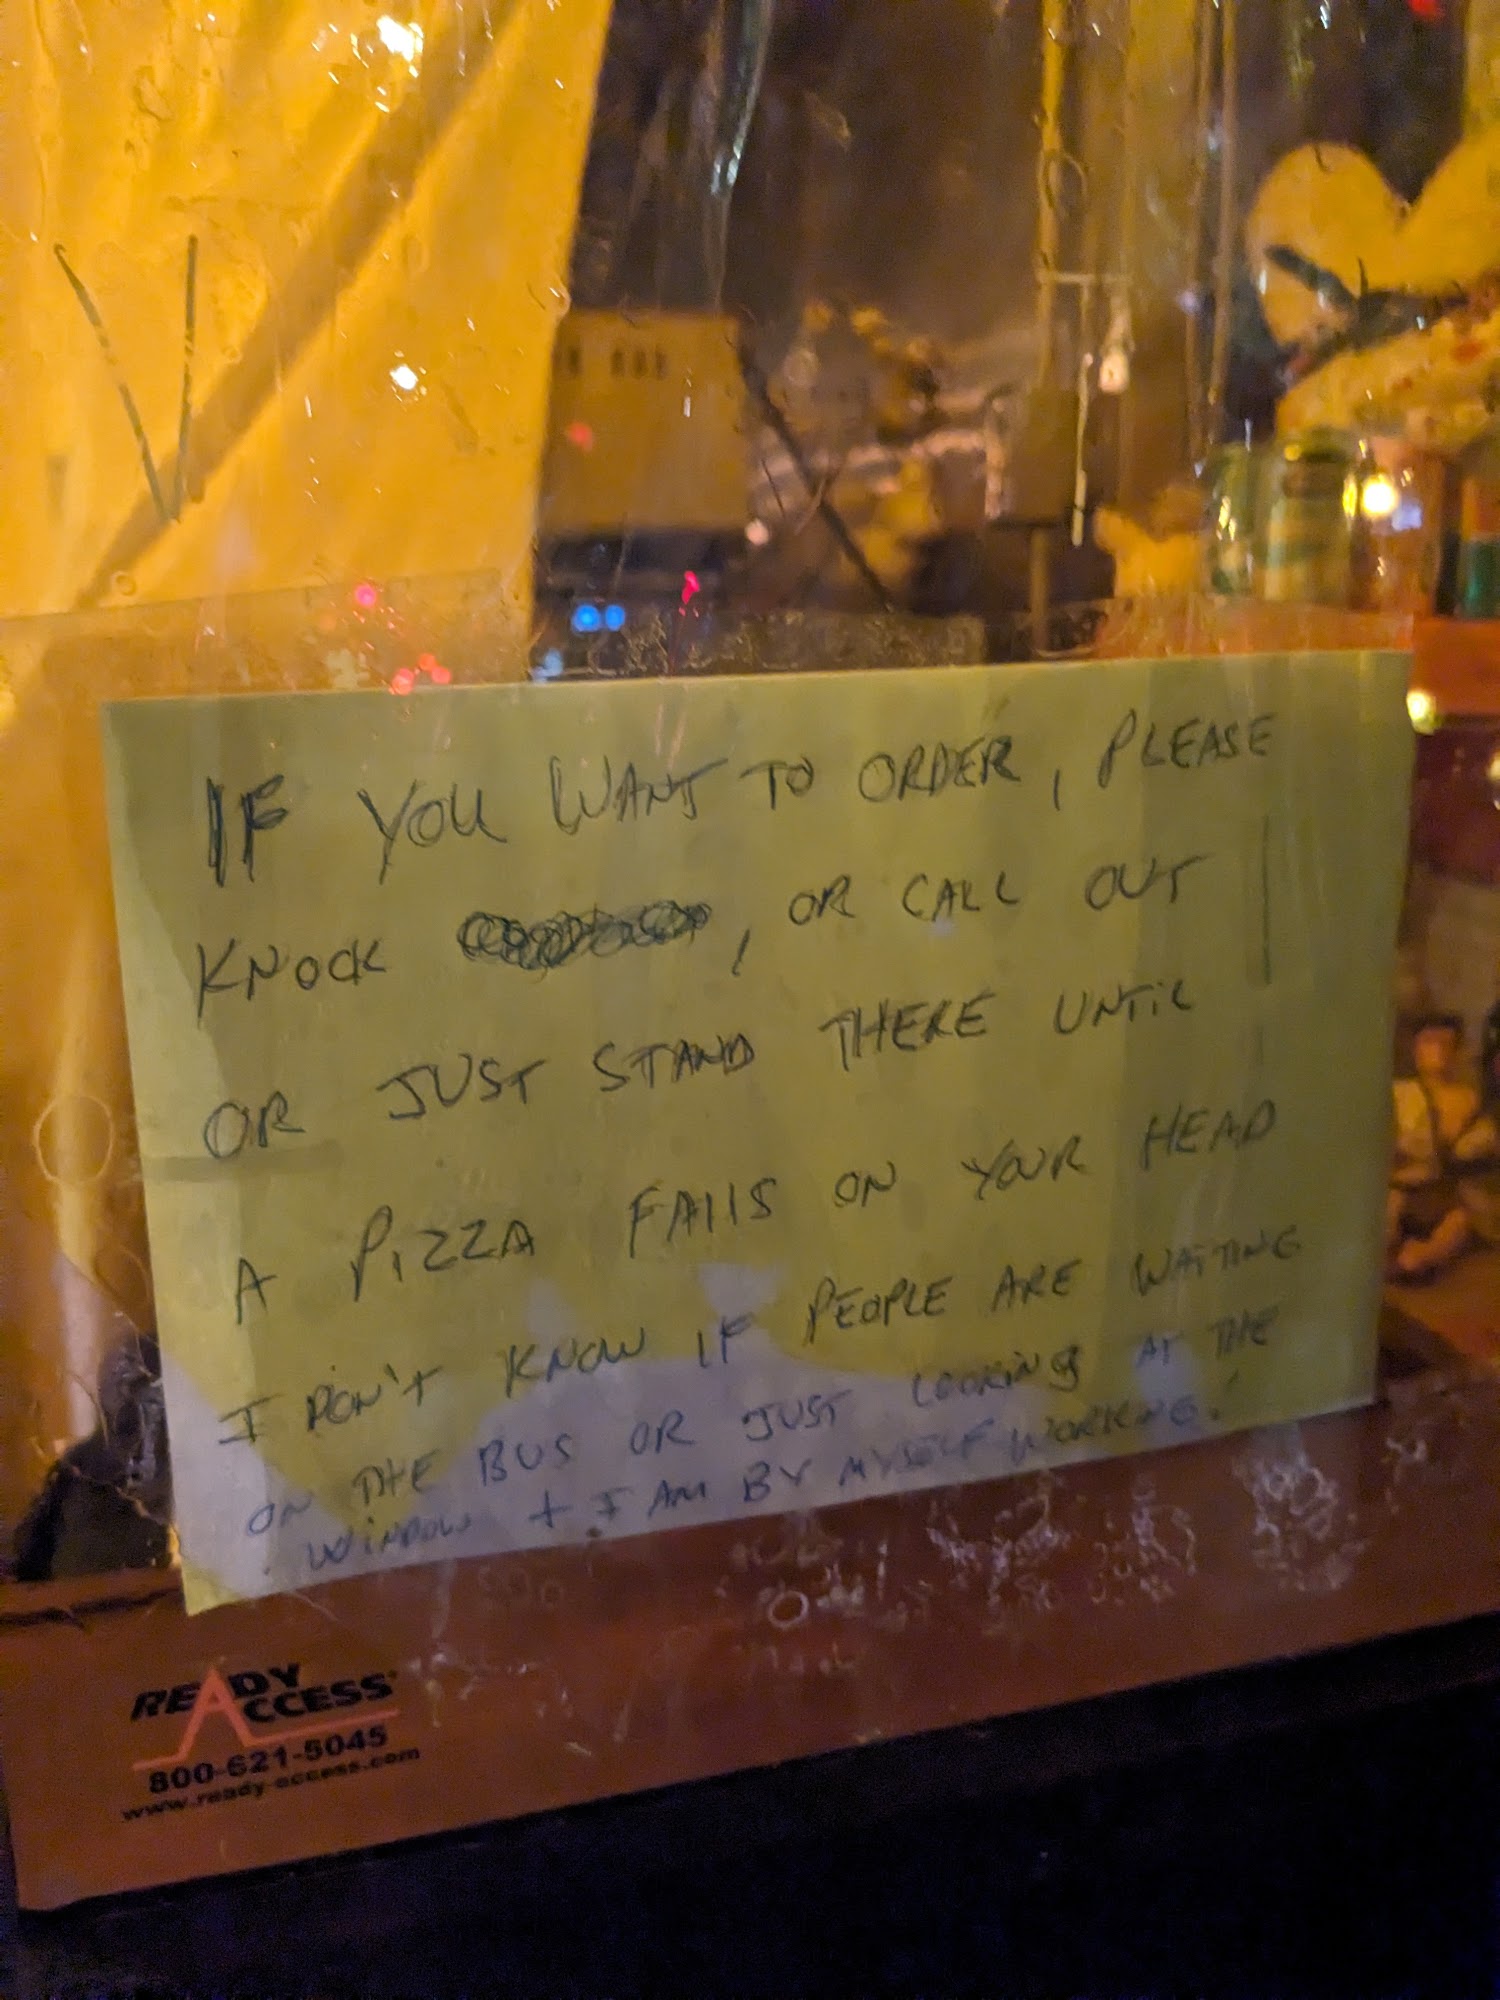 IF YOU WANT TO ORDER, PLEASE
KNOCK , OR CALL OUT
OR JUST STAND THERE UNTIL
A PIZZA FALLS ON YOUR HEAD
I DON'T KNOW IF PEOPLE ARE WAITING
ON THE BUS OR JUST LOOKING AT THE
WINDOW + I AM BY MYSELF WORKING!
READY
ACCESS
800-621-5045
www.ready-access.com